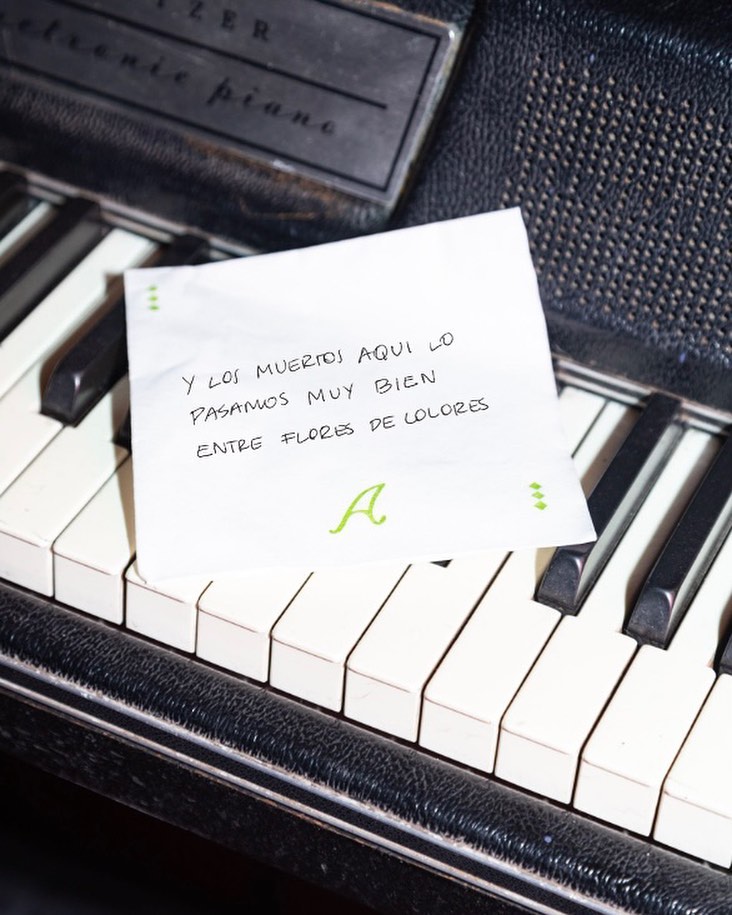 IZER
electronic piano
Y LOS MUERTOS AQUI LO
PASAMOS MUY BIEN
ENTRE FLORES DE COLORES
A